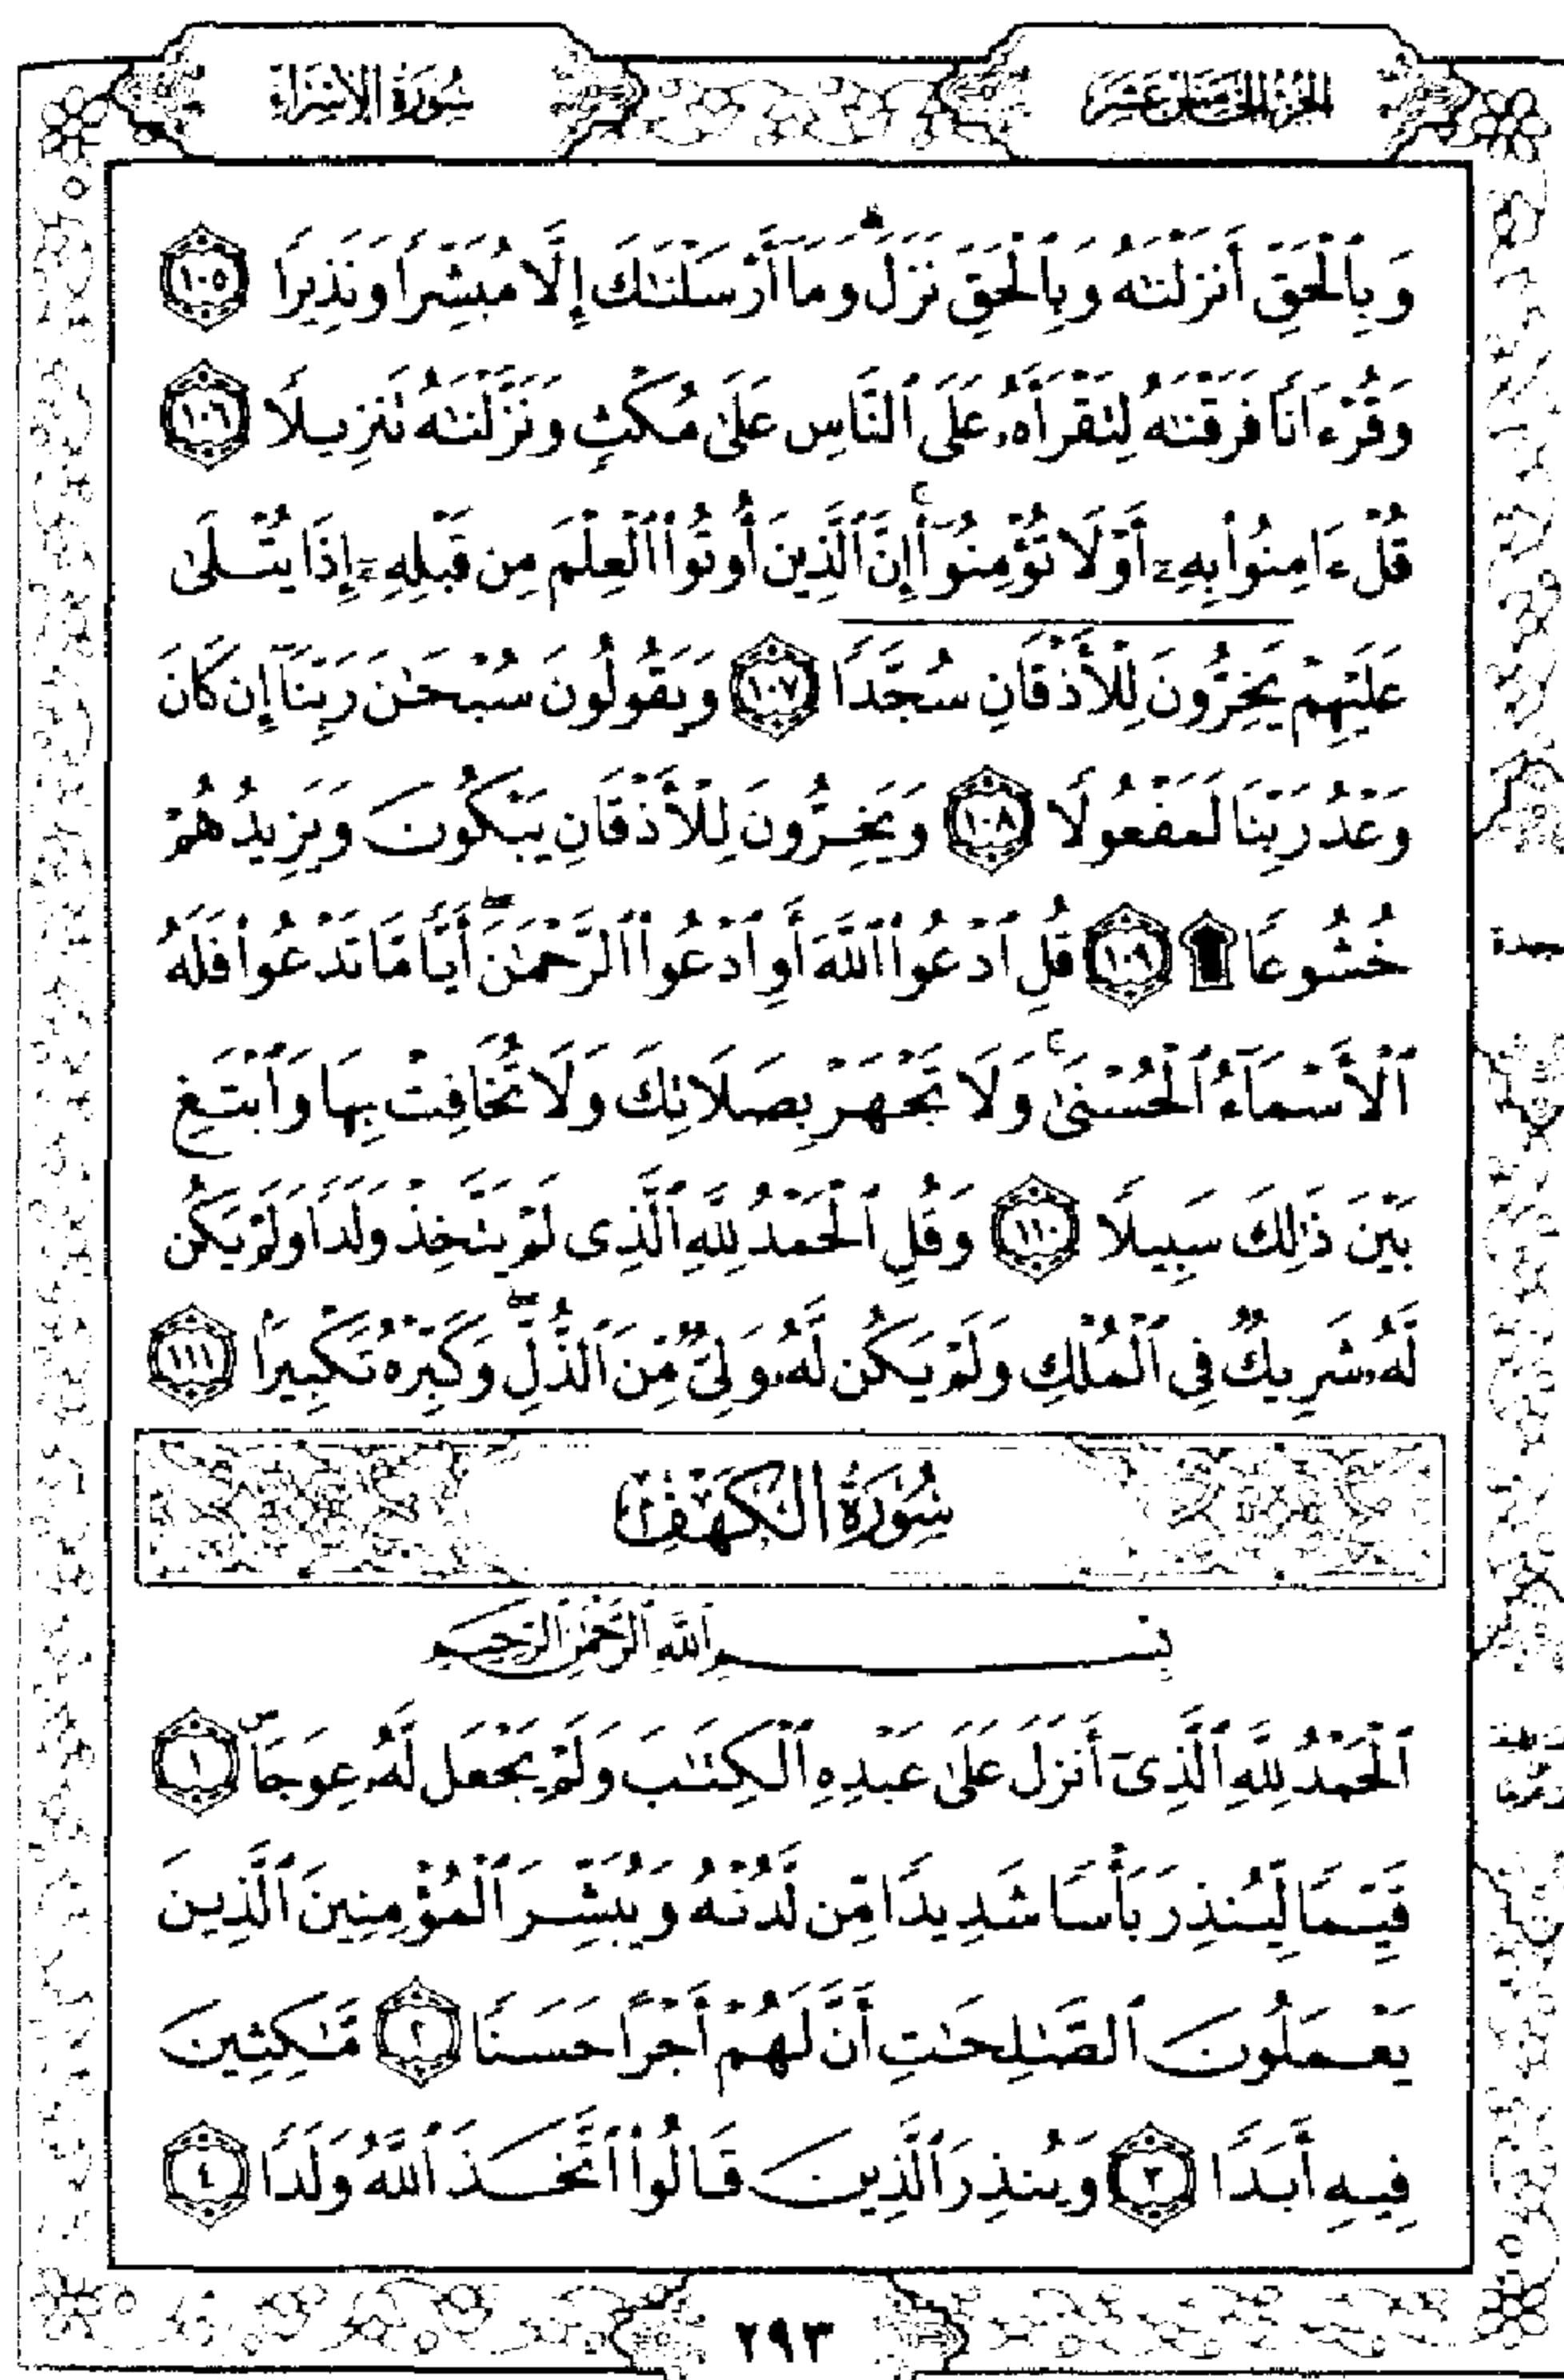 الجزء الخامس عشر
سورة الإسراء
وَبِٱلْحَقِّ أَنزَلْنَٰهُ وَبِٱلْحَقِّ نَزَلَ ۗ وَمَآ أَرْسَلْنَٰكَ إِلَّا مُبَشِّرًا وَنَذِيرًا ١٠٥
وَقُرْءَانًا فَرَقْنَٰهُ لِتَقْرَأَهُۥ عَلَى ٱلنَّاسِ عَلَىٰ مُكْثٍ وَنَزَّلْنَٰهُ تَنزِيلًا ١٠٦
قُلْ ءَامِنُوا۟ بِهِۦٓ أَوْ لَا تُؤْمِنُوٓا۟ ۚ إِنَّ ٱلَّذِينَ أُوتُوا۟ ٱلْعِلْمَ مِن قَبْلِهِۦٓ إِذَا يُتْلَىٰ
عَلَيْهِمْ يَخِرُّونَ لِلْأَذْقَانِ سُجَّدًا ١٠٧ وَيَقُولُونَ سُبْحَٰنَ رَبِّنَآ إِن كَانَ
وَعْدُ رَبِّنَا لَمَفْعُولًا ١٠٨ وَيَخِرُّونَ لِلْأَذْقَانِ يَبْكُونَ وَيَزِيدُهُمْ
خُشُوعًا ۩ ١٠٩ قُلِ ٱدْعُوا۟ ٱللَّهَ أَوِ ٱدْعُوا۟ ٱلرَّحْمَٰنَ ۖ أَيًّا مَّا تَدْعُوا۟ فَلَهُ
ٱلْأَسْمَآءُ ٱلْحُسْنَىٰ ۚ وَلَا تَجْهَرْ بِصَلَاتِكَ وَلَا تُخَافِتْ بِهَا وَٱبْتَغِ
بَيْنَ ذَٰلِكَ سَبِيلًا ١١٠ وَقُلِ ٱلْحَمْدُ لِلَّهِ ٱلَّذِى لَمْ يَتَّخِذْ وَلَدًا وَلَمْ يَكُن
لَّهُۥ شَرِيكٌ فِى ٱلْمُلْكِ وَلَمْ يَكُن لَّهُۥ وَلِىٌّ مِّنَ ٱلذُّلِّ ۖ وَكَبِّرْهُ تَكْبِيرًا ١١١
سُورَةُ الكَهْفِ
بِسْمِ ٱللَّهِ ٱلرَّحْمَٰنِ ٱلرَّحِيمِ
ٱلْحَمْدُ لِلَّهِ ٱلَّذِىٓ أَنزَلَ عَلَىٰ عَبْدِهِ ٱلْكِتَٰبَ وَلَمْ يَجْعَل لَّهُۥ عِوَجَا ۜ ١
قَيِّمًا لِّيُنذِرَ بَأْسًا شَدِيدًا مِّن لَّدُنْهُ وَيُبَشِّرَ ٱلْمُؤْمِنِينَ ٱلَّذِينَ
يَعْمَلُونَ ٱلصَّٰلِحَٰتِ أَنَّ لَهُمْ أَجْرًا حَسَنًا ٢ مَّٰكِثِينَ
فِيهِ أَبَدًا ٣ وَيُنذِرَ ٱلَّذِينَ قَالُوا۟ ٱتَّخَذَ ٱللَّهُ وَلَدًا ٤
٢٩٣